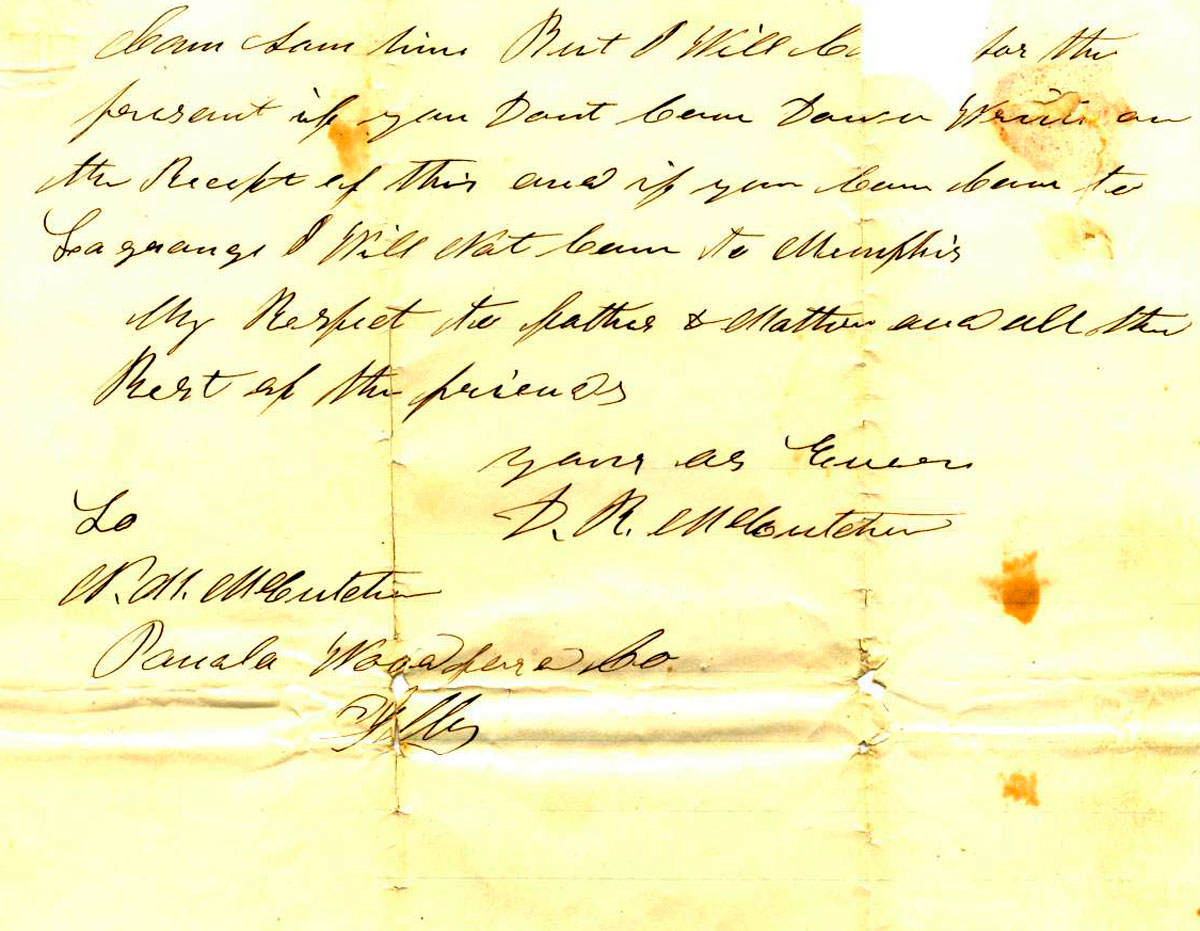 Cam Sam time But I Will for the
present if you Dont Cam Down Write on
the Recept of this and if you Cam Cam to
Lagrange I Will Not Cam to Memphis
My Respect to father & Mother and all the
Rest of the friends
yours as Ever
D. R. McCutchen
To
McCutchen
Panala Woodford Co
Ills